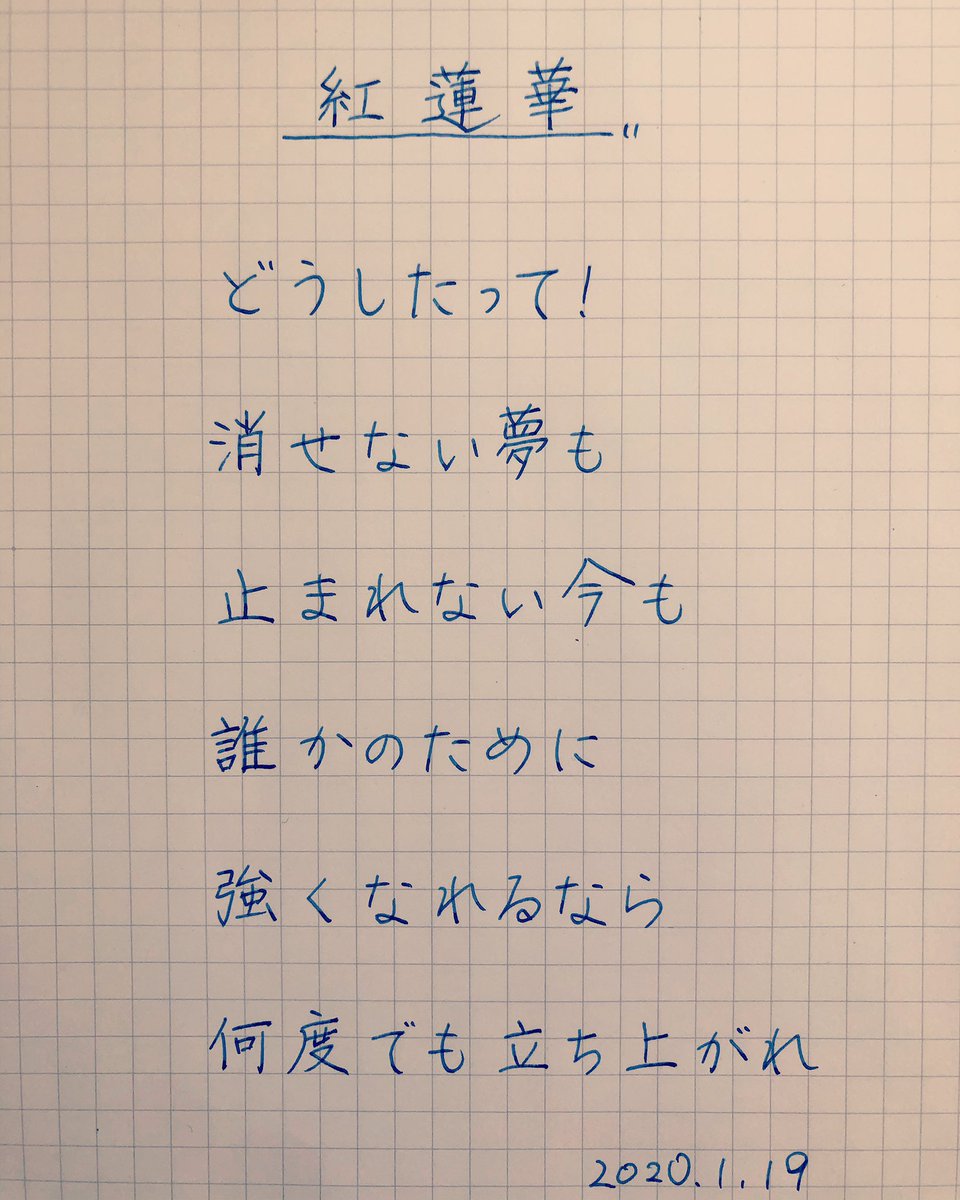 紅蓮華
どうしたって!
消せない夢も
止まれない今も
誰かのために
強くなれるなら
何度でも立ち上がれ
2020.1.19